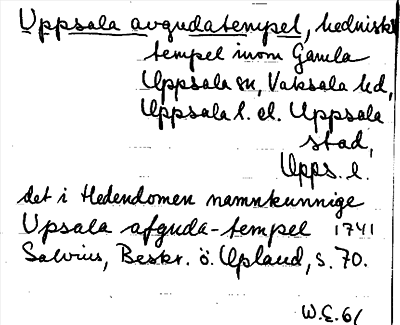 Uppsala avgudatempel, hedniskt
tempel inom Gamla
Uppsala sn, Vaksala hd,
Uppsala l. el. Uppsala
stad,
Upps. l.
det i Hedendomen namnkunnige
Upsala afguda-tempel 1741
Salvius, Beskr. ö. Upland, s. 70.
W.E. 61